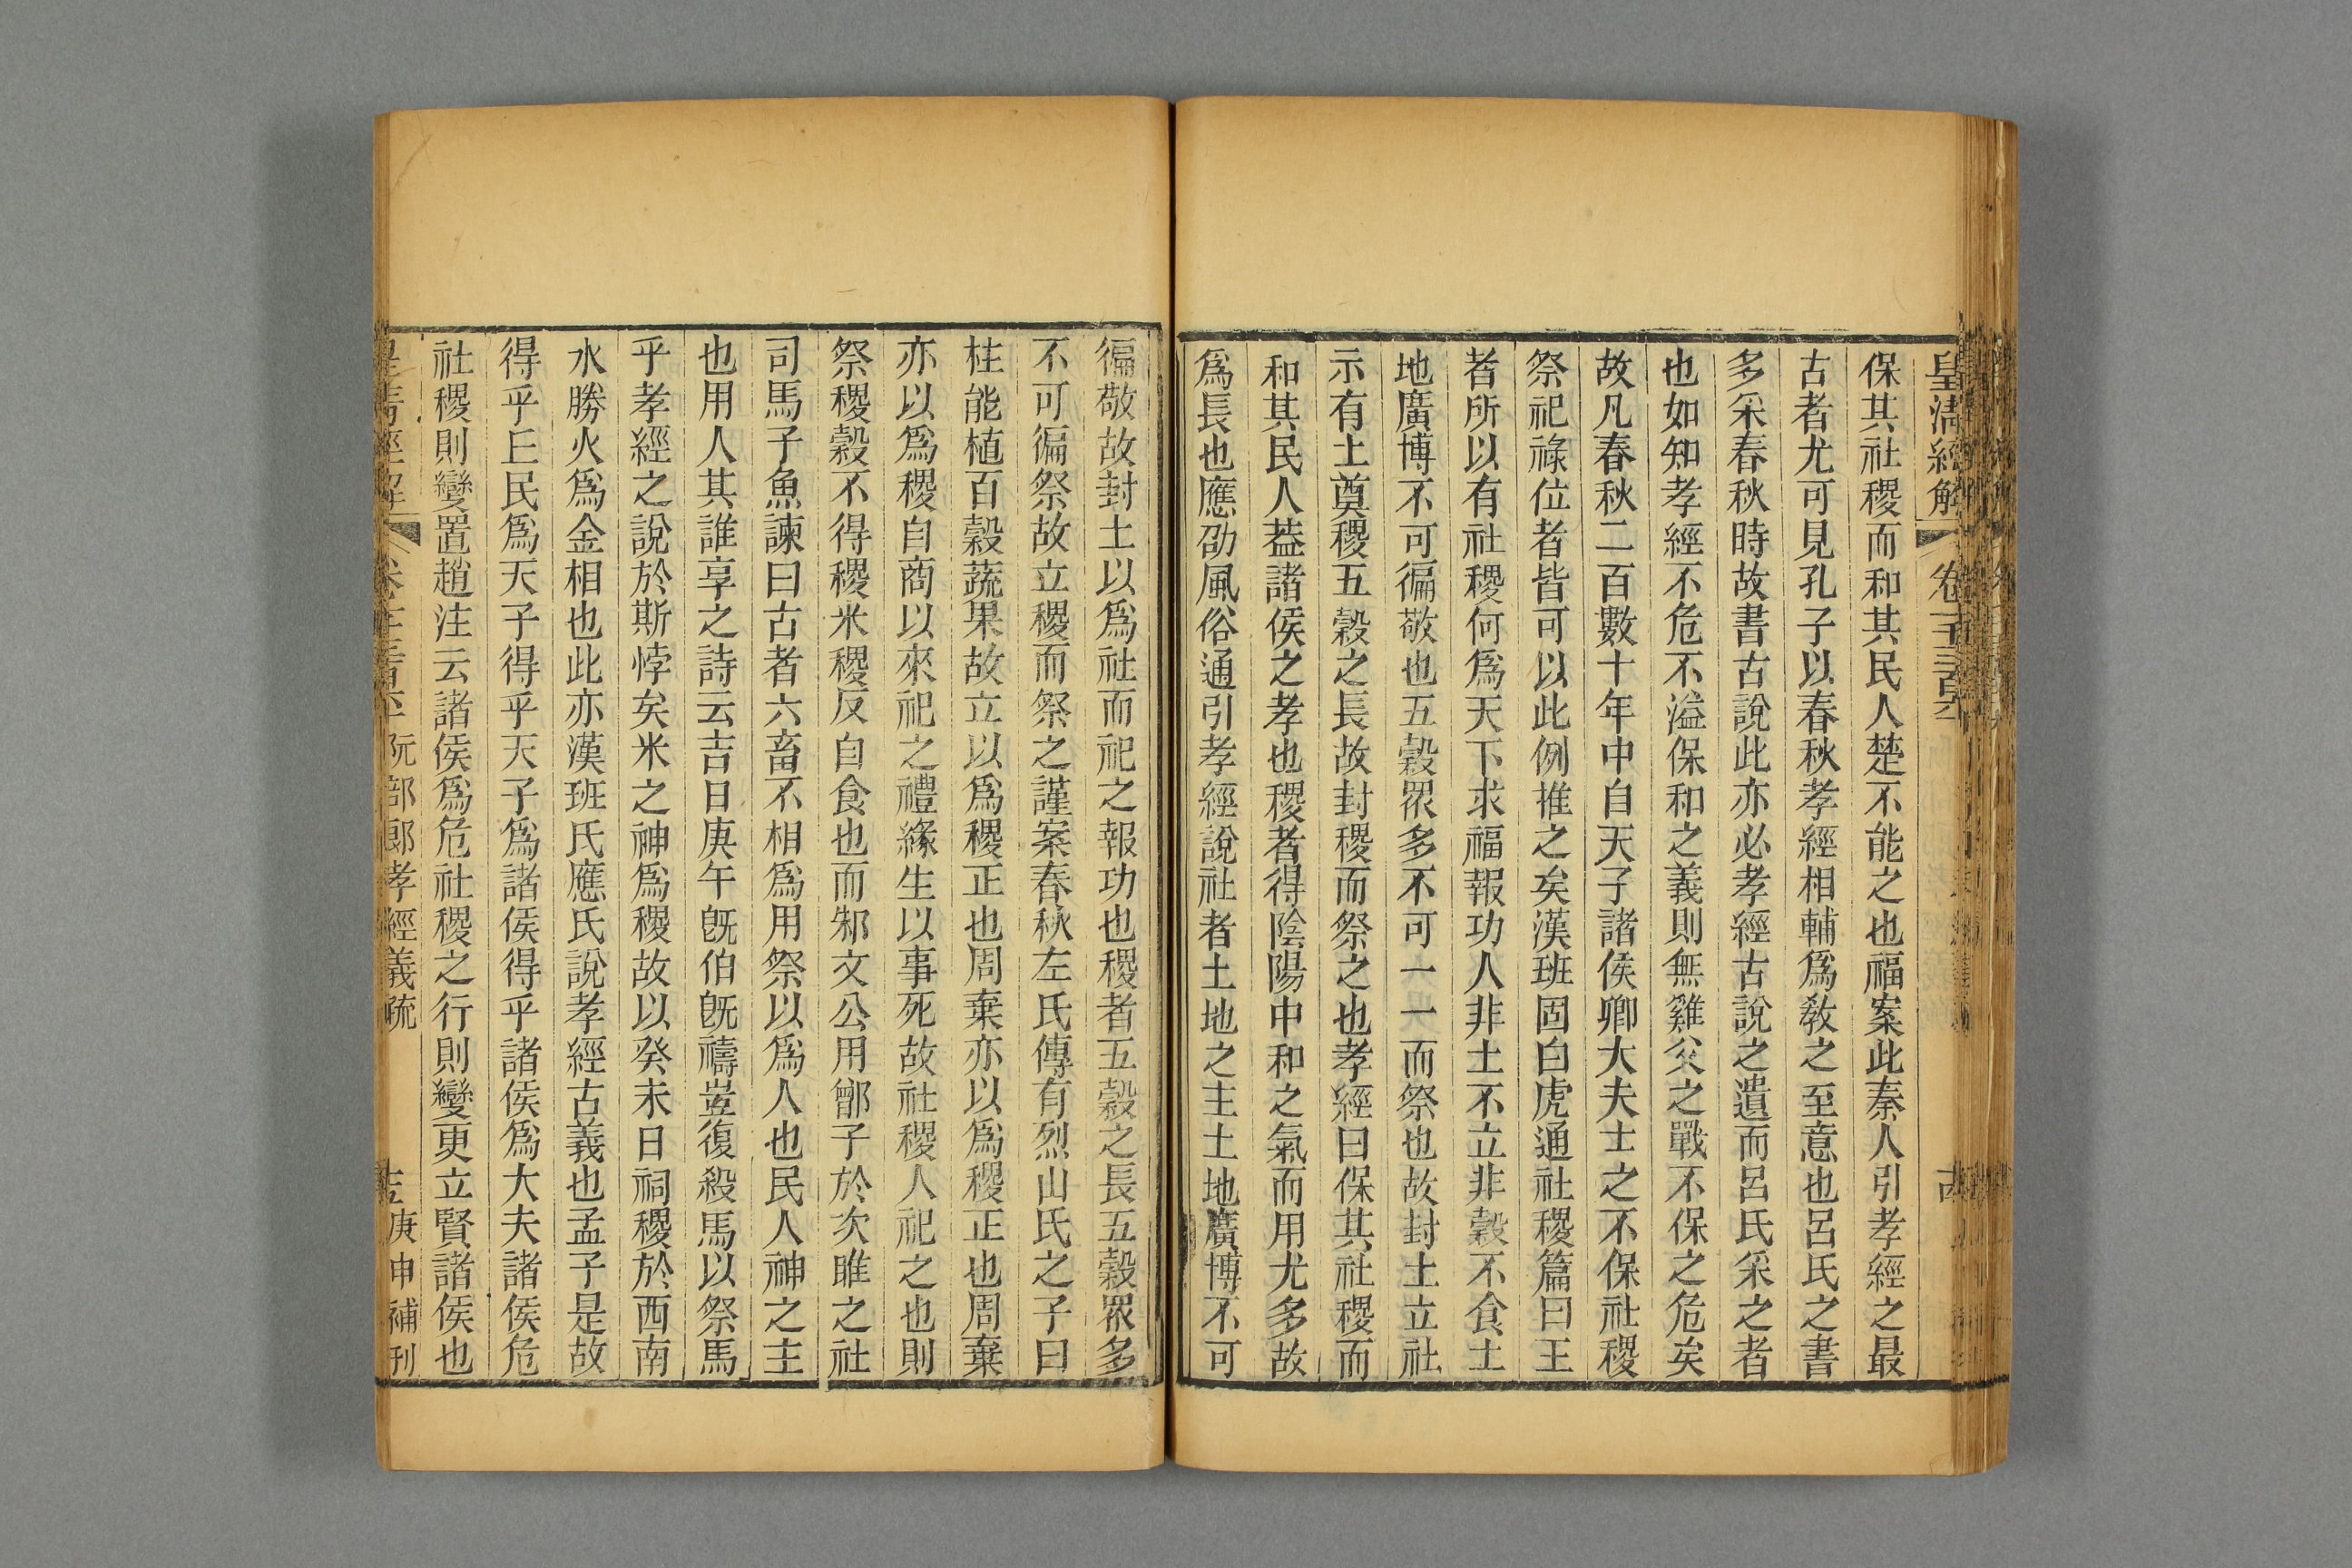 皇清經解 卷
保其社稷而和其民人楚不能之也福案此秦人引孝經之最
古者尤可見孔子以春秋孝經相輔爲敎之至意也呂氏之書
多采春秋時故書古說此亦必孝經古說之遺而呂氏采之者
也如知孝經不危不溢保和之義則無雞父之戰不保之危矣
故凡春秋二百數十年中自天子諸侯卿大夫士之不保社稷
祭祀祿位者皆可以此例推之矣漢班固白虎通社稷篇曰王
者所以有社稷何爲天下求福報功人非土不立非穀不食土
地廣博不可徧敬也五穀眾多不可一一而祭也故封土立社
示有土奠稷五穀之長故封稷而祭之也孝經曰保其社稷而
和其民人葢諸侯之孝也稷者得陰陽中和之氣而用尤多故
爲長也應劭風俗通引孝經說社者土地之主土地廣博不可
徧敬故封土以爲社而祀之報功也稷者五穀之長五穀眾多
不可徧祭故立稷而祭之謹案春秋左氏傳有烈山氏之子曰
柱能植百穀蔬果故立以爲稷正也周棄亦以爲稷正也周棄
亦以爲稷自商以來祀之禮緣生以事死故社稷人祀之也則
祭稷穀不得稷米稷反自食也而邾文公用鄫子於次睢之社
司馬子魚諫曰古者六畜不相爲用祭以爲人也民人神之主
也用人其誰享之詩云吉日庚午旣伯旣禱豈復殺馬以祭馬
乎孝經之說於斯悖矣米之神爲稷故以癸未日祠稷於西南
水勝火爲金相也此亦漢班氏應氏說孝經古義也孟子是故
得乎丘民爲天子得乎天子爲諸侯得乎諸侯爲大夫諸侯危
社稷則變置趙注云諸侯爲危社稷之行則變更立賢諸侯也
皇清經解 阮部郎孝經義疏 庚申補刊